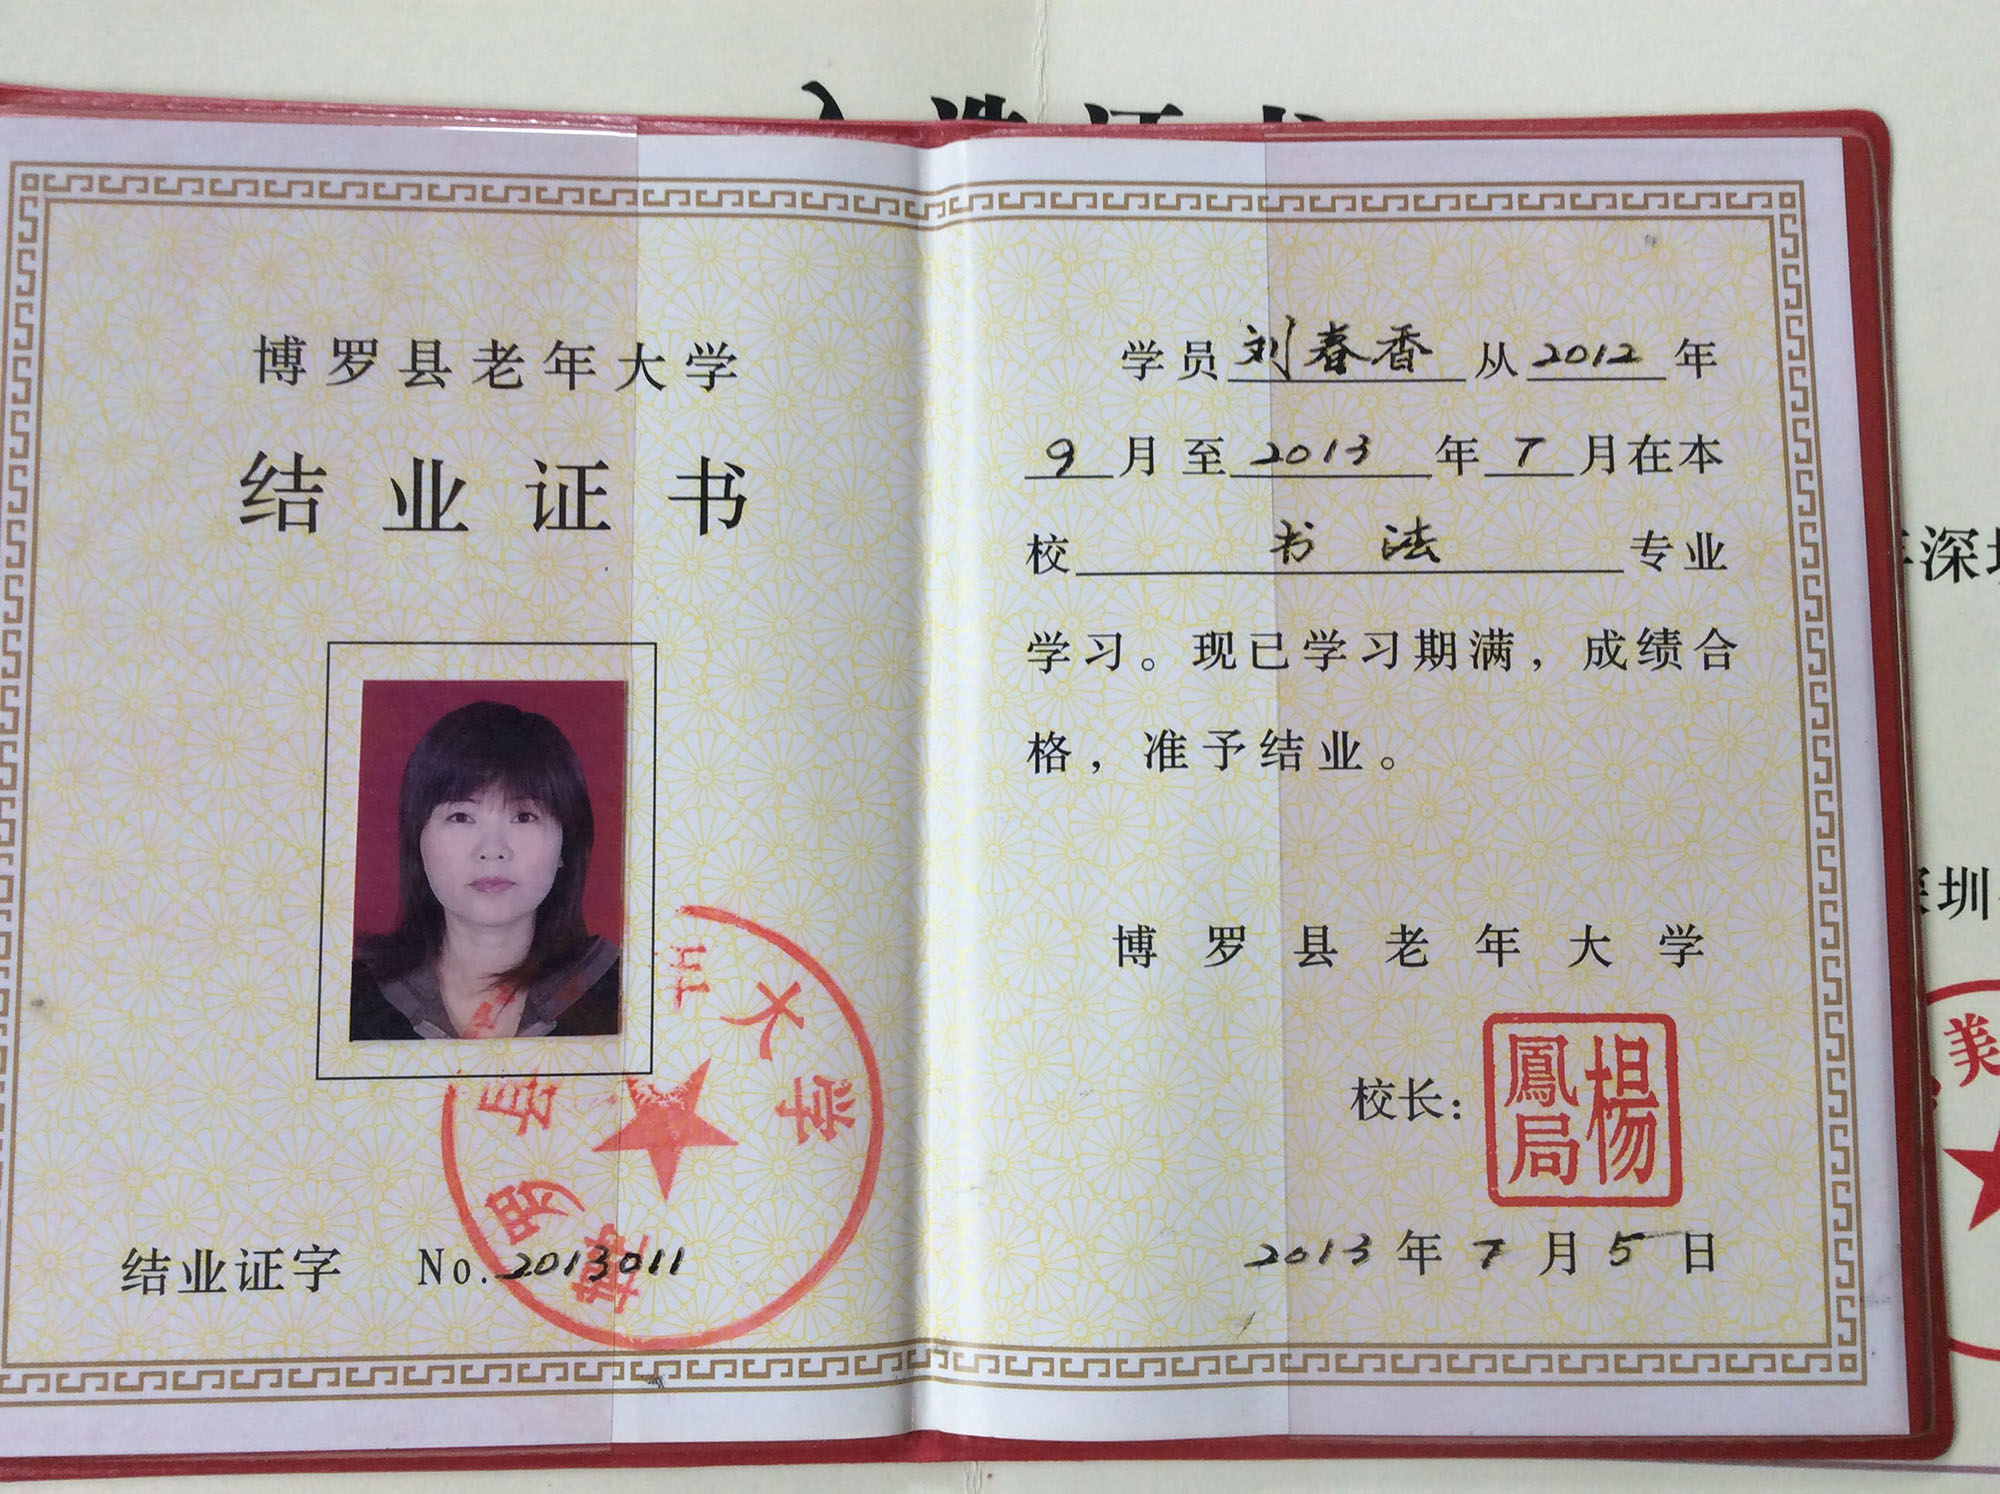 入选证书
博罗县老年大学
结业证书
博罗县老年大学
结业证字 No.2013011
学员刘春香从2012年
9月至2013年7月在本
校书法专业
学习。现已学习期满，成绩合
格，准予结业。
博罗县老年大学
校长：
楊鳳局
2013年7月5日
深圳
深圳
美